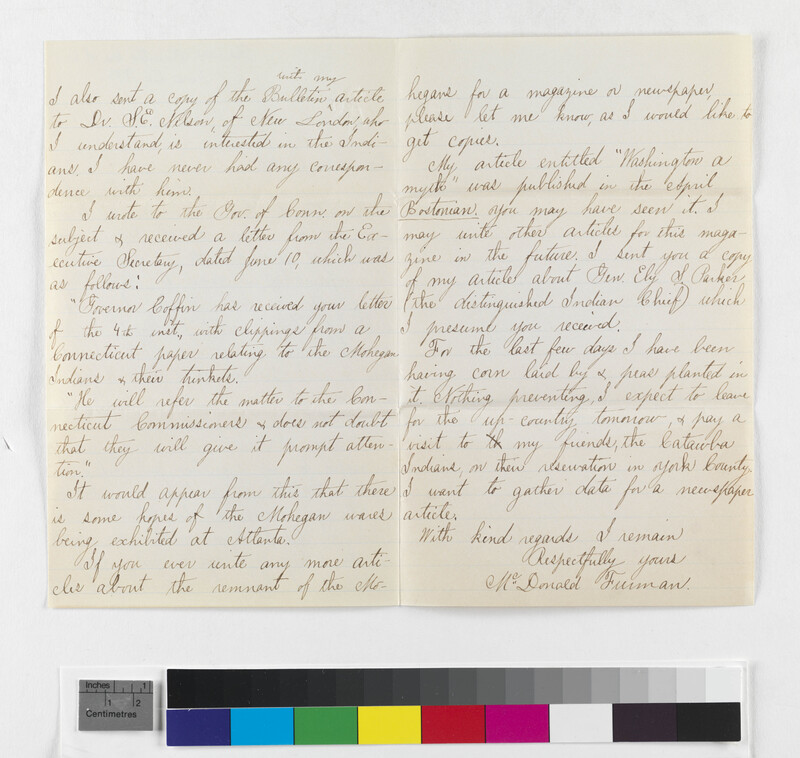 with my
I also sent a copy of the "Bulletin" article
to Dr. S.E. Nelson, of New London, who
I understand, is interested in the Indi-
ans. I have never had any correspon-
dence with him.
I wrote to the Gov. of Conn. on the
subject & received a letter from the Ex-
ecutive Secretary, dated June 10, which was
as follows:
"Governor Coffin has received your letter
of the 4th inst., with clippings from a
Connecticut paper relating to the Mohegan
Indians & their trinkets.
"He will refer the matter to the Con-
necticut Commissioners & does not doubt
that they will give it prompt atten-
tion."
It would appear from this that there
is some hopes of the Mohegan wares
being exhibited at Atlanta.
If you ever write any more arti-
cles about the remnant of the Mo-
hegans for a magazine or newspaper,
please let me know, as I would like to
get copies.
My article entitled "Washington a
myth" was published in the April
Bostonian. You may have seen it. I
may write other articles for this maga-
zine in the future. I sent you a copy
of my article about Gen. Ely S. Parker
(the distinguished Indian Chief) which
I presume you received.
For the last few days I have been
having corn laid by & peas planted in
it. Nothing preventing, I expect to leave
for the up-country tomorrow, & pay a
visit to my friends, the Catawba
Indians, on their reservation in York County.
I want to gather data for a newspaper
article.
With kind regards I remain
Respectfully yours
McDonald Furman.
Inches 1
1 2
Centimetres